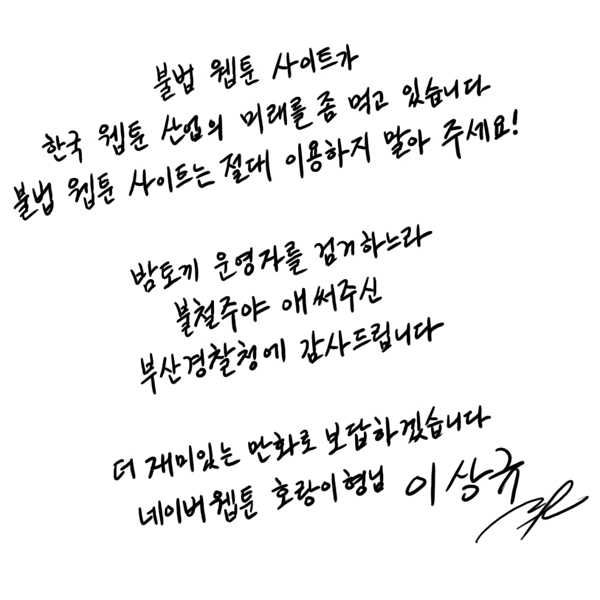 불법 웹툰 사이트가
한국 웹툰 산업의 미래를 좀 먹고 있습니다
불법 웹툰 사이트는 절대 이용하지 말아 주세요!
밤토끼 운영자를 검거하느라
불철주야 애써주신
부산경찰청에 감사드립니다
더 재미있는 만화로 보답하겠습니다
네이버웹툰 호랑이형님 이상규